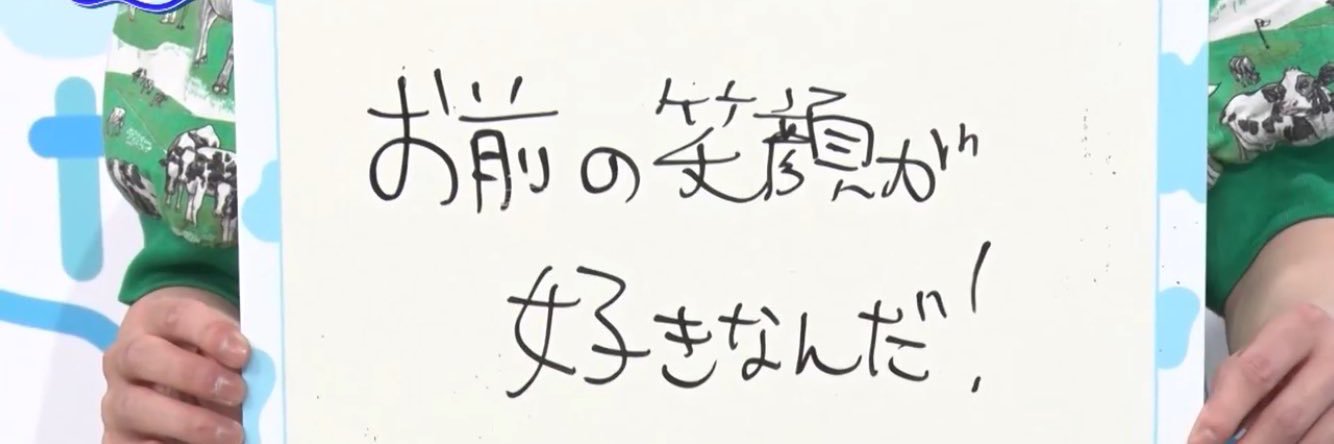 お前の笑顔が
好きなんだ!